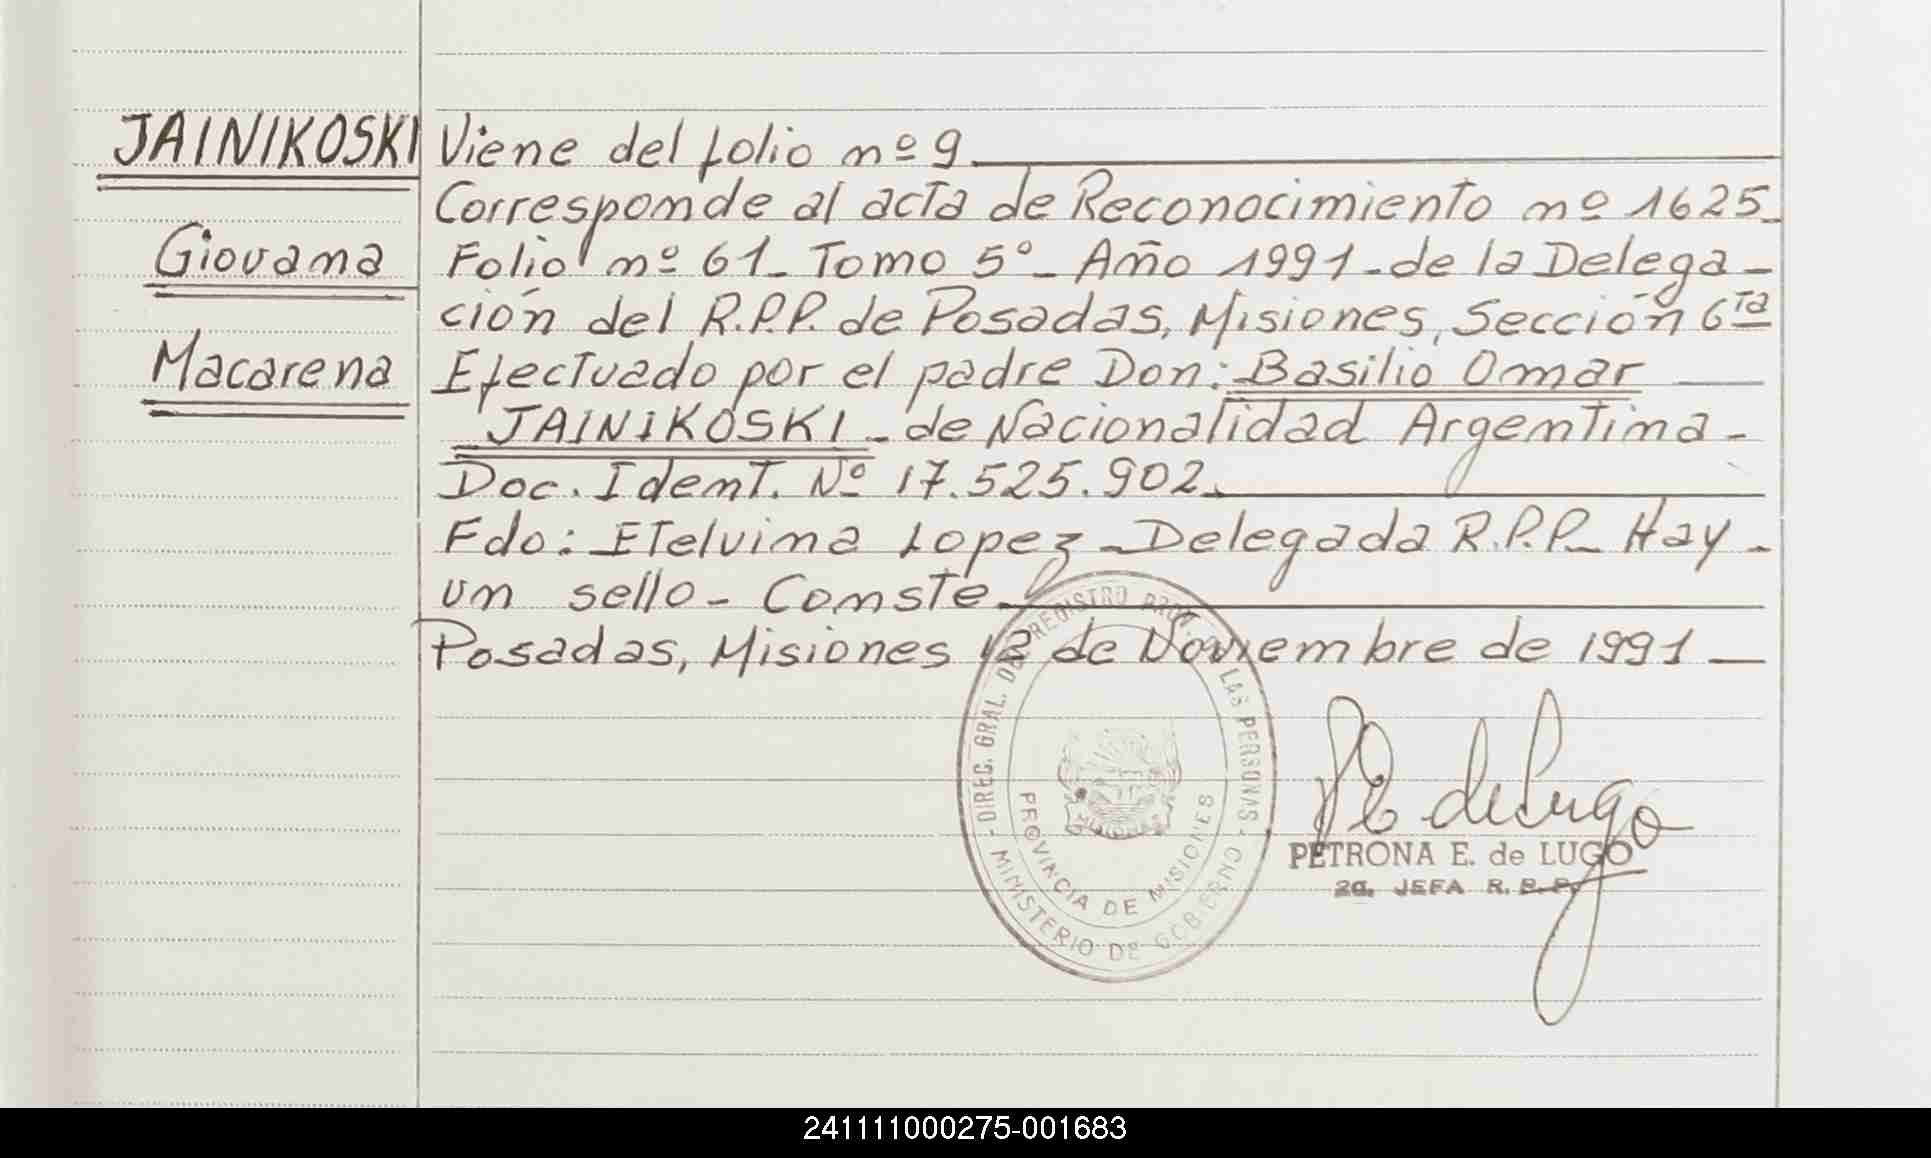 JAINIKOSKI
Giovana
Macarena
Viene del folio nº 9
Corresponde al acta de Reconocimiento nº 1625-
Folio nº 61- Tomo 5º- Año 1991-de la Delega-
ción del R.P.P. de Posadas, Misiones, Sección 6ta
Efectuado por el padre Don: Basilio Omar
JAINIKOSKI - de Nacionalidad Argentina-
Doc. Ident. Nº 17.525.902.
Fdo: Etelvina Lopez-Delegada R.P.P- Hay-
un sello- Conste.
Posadas, Misiones 12 de Noviembre de 1991
- DIREC. GRAL. DEL REGISTRO PROV. DE LAS PERSONAS -
MINISTERIO DE GOBIERNO
PROVINCIA DE MISIONES
P E de Lugo
PETRONA E. de LUGO
2a. JEFA R. P. P.
241111000275-001683